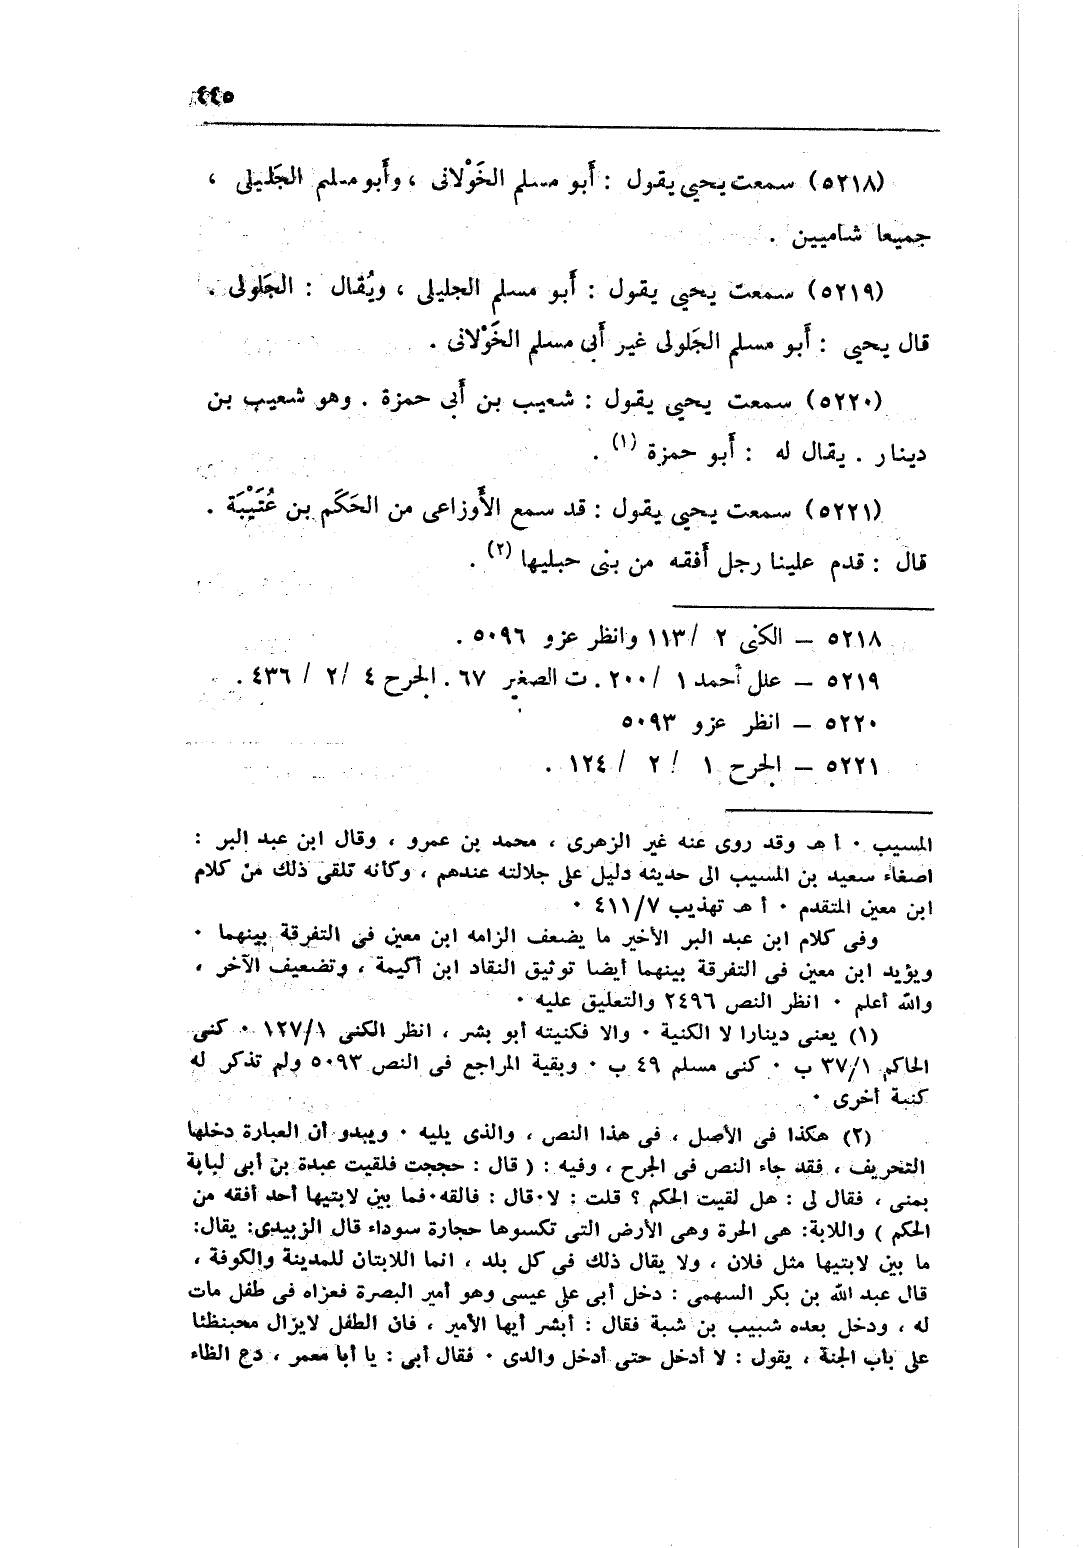 ٤٤٥
(٥٢١٨) سمعت يحيى يقول : أَبو مسلم الخَوْلانى ، وأَبو مسلم الجَليلى ،
جميعا شاميين .
(٥٢١٩) سمعت يحيى يقول : أَبو مسلم الجليلى ، ويُقال : الجَلولى .
قال يحيى : أَبو مسلم الجَلولى غير أَبى مسلم الخَوْلانى .
(٥٢٢٠) سمعت يحيى يقول : شعيب بن أَبى حمزة . وهو شعيب بن
دينار . يقال له : أَبو حمزة (١) .
(٥٢٢١) سمعت يحيى يقول : قد سمع الأَوزاعى من الحَكَم بن عُتَيْبَة .
قال : قدم علينا رجل أَفقه من بنى حبليها (٢) .
٥٢١٨ – الكنى ٢ / ١١٣ وانظر عزو ٥٠٩٦ .
٥٢١٩ – علل أحمد ١ / ٢٠٠ . ت الصغير ٦٧ . الجرح ٤ / ٢ / ٤٣٦ .
٥٢٢٠ – انظر عزو ٥٠٩٣
٥٢٢١ – الجرح ١ / ٢ / ١٢٤ .
المسيب ٠ أ هـ وقد روى عنه غير الزهرى ، محمد بن عمرو ، وقال ابن عبد البر :
اصغاء سعيد بن المسيب الى حديثه دليل على جلالته عندهم ، وكأنه تلقى ذلك من كلام
ابن معين المتقدم ٠ أ هـ تهذيب ٤١١/٧ ٠
وفى كلام ابن عبد البر الأخير ما يضعف الزامه ابن معين فى التفرقة بينهما ٠
ويؤيد ابن معين فى التفرقة بينهما أيضا توثيق النقاد ابن أكيمة ، وتضعيف الآخر ،
والله أعلم ٠ انظر النص ٢٤٩٦ والتعليق عليه ٠
(١) يعنى دينارا لا الكنية ٠ والا فكنيته أبو بشر ، انظر الكنى ١٢٧/١ ٠ كنى
الحاكم ٣٧/١ ب ٠ كنى مسلم ٤٩ ب ٠ وبقية المراجع فى النص ٥٠٩٣ ولم تذكر له
كنية أخرى ٠
(٢) هكذا فى الأصل ، فى هذا النص ، والذى يليه ٠ ويبدو أن العبارة دخلها
التحريف ، فقد جاء النص فى الجرح ، وفيه : ( قال : حججت فلقيت عبدة بن أبى لبابة
بمنى ، فقال لى : هل لقيت الحكم ؟ قلت : لا٠قال : فالقه٠فما بين لابتيها أحد أفقه من
الحكم ) واللابة: هى الحرة وهى الأرض التى تكسوها حجارة سوداء قال الزبيدى: يقال:
ما بين لابتيها مثل فلان ، ولا يقال ذلك فى كل بلد ، انما اللابتان للمدينة والكوفة ،
قال عبد الله بن بكر السهمى : دخل أبى على عيسى وهو أمير البصرة فعزاه فى طفل مات
له ، ودخل بعده شبيب بن شبة فقال : أبشر أيها الأمير ، فان الطفل لايزال محبنظئا
على باب الجنة ، يقول : لا أدخل حتى أدخل والدى ٠ فقال أبى : يا أبا معمر ، دع الظاء